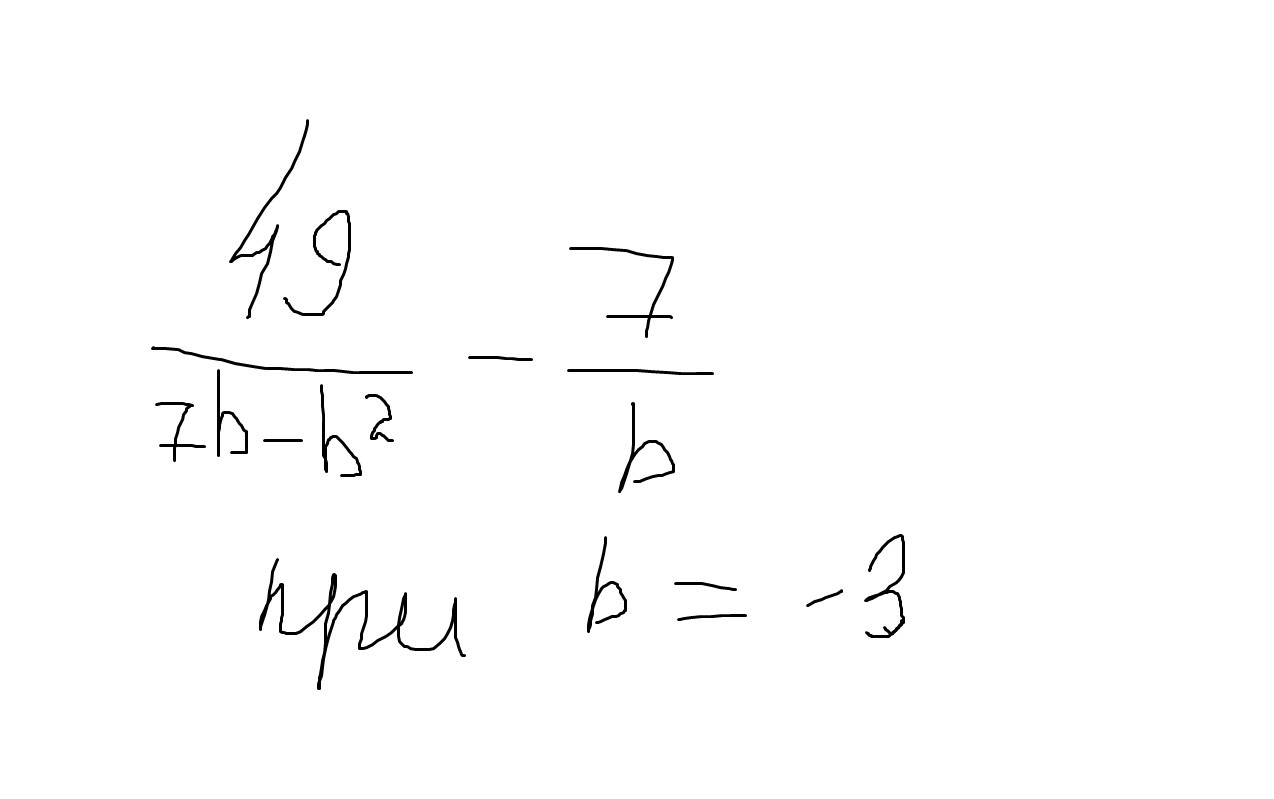 49/(7b-b²) - 7/b
при b = -3